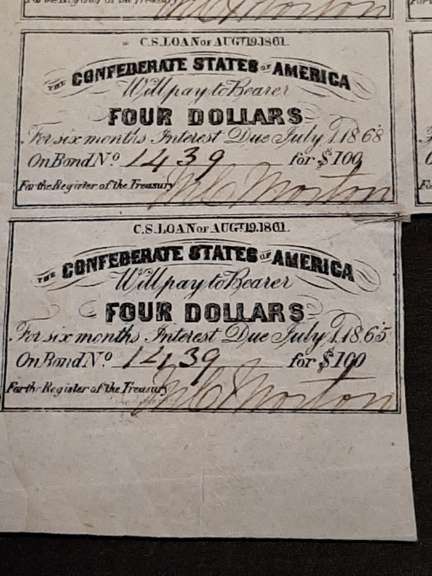 For the Register of the Treasury
C.S. LOAN OF AUGT. 19. 1861.
THE CONFEDERATE STATES OF AMERICA
Will pay to Bearer
FOUR DOLLARS
For six months Interest Due July 1. 1868
On Bond No 1439 for $100
For the Register of the Treasury Morton
C.S. LOAN OF AUGT. 19. 1861.
THE CONFEDERATE STATES OF AMERICA
Will pay to Bearer
FOUR DOLLARS
For six months Interest Due July 1. 1865
On Bond No 1439 for $100
For the Register of the Treasury Morton